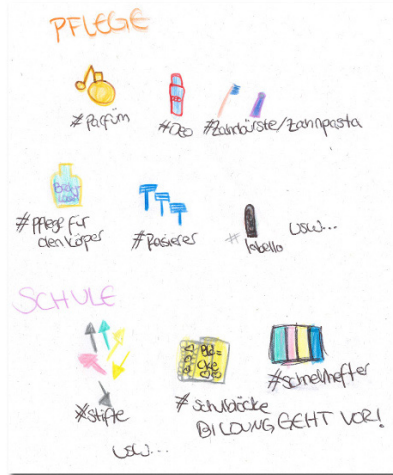 PFLEGE
#Parfüm
#Deo
#Zahnbürste/Zahnpasta
Body
#Pflege für
den Körper
#Rasierer
#labello
usw...
SCHULE
#Stifte
#Schulblöcke
#Schnellhefter
BILDUNG GEHT VOR!
usw...